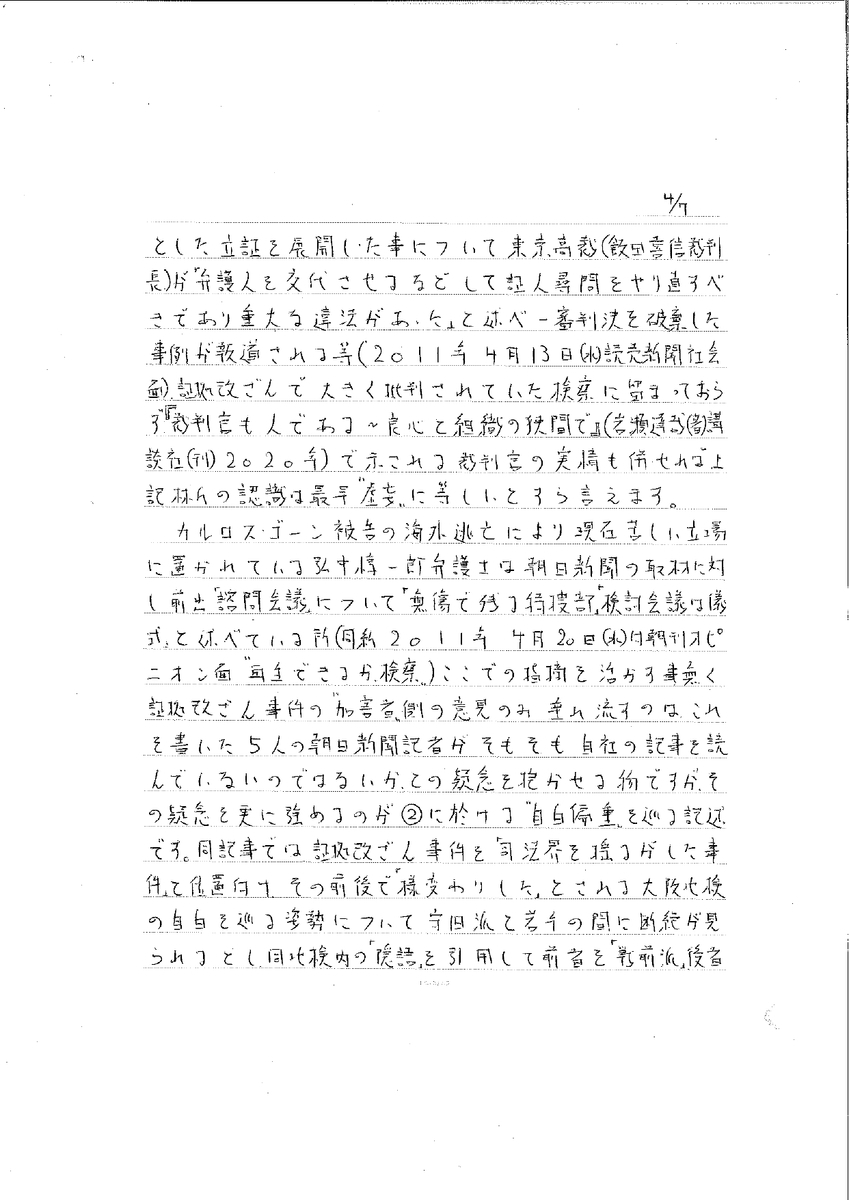 4/7
とした立証を展開した事について東京高裁(飯田喜信裁判
長)が“弁護人を交代させるなどして証人尋問をやり直すべ
きであり重大な違法があった„と述べ一審判決を破棄した
事例が報道される等(2011年4月13日(水)読売新聞社会
面)、証拠改ざんで大きく批判されていた検察に留まっておら
ず『裁判官も人である～良心と組織の狭間で』(岩瀬達哉(著)講
談社(刊)2020年)で示される裁判官の実情も併せれば上
記林氏の認識は最早“虚妄„に等しいとすら言えます。
カルロス・ゴーン被告の海外逃亡により現在苦しい立場
に置かれている弘中惇一郎弁護士は朝日新聞の取材に対
し前出「諮問会議」について「無傷で残る特捜部」「検討会議は儀
式」と述べている所(同紙2011年4月20日(水)付朝刊オピ
ニオン面“再生できるか、検察„)ここでの指摘を活かす事無く
証拠改ざん事件の“加害者„側の意見のみ垂れ流すのは、これ
を書いた5人の朝日新聞記者がそもそも自社の記事を読
んでいないのではないか、との疑念を抱かせる物ですが、そ
の疑念を更に強めるのが②に於ける“自白偏重„を巡る記述
です。同記事では証拠改ざん事件を「司法界を揺るがした事
件」と位置付け、その前後で「様変わりした」とされる大阪地検
の自白を巡る姿勢について守旧派と若手の間に断絶が見
られるとし同地検内の「隠語」を引用して前者を「戦前派」、後者